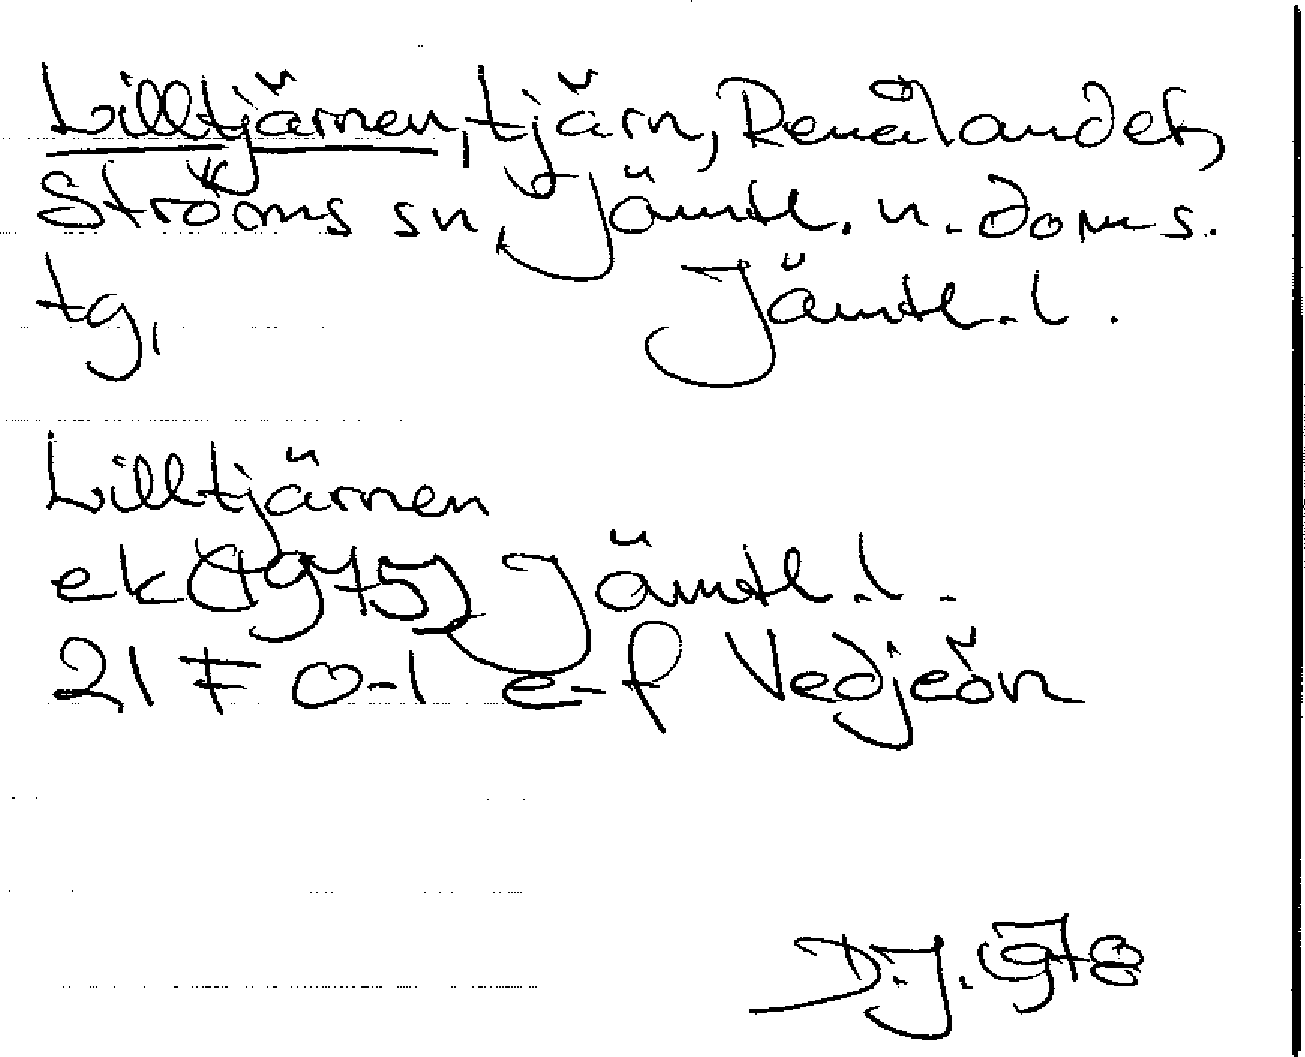 Lilltjärnen, tjärn, Renålandet,
Ströms sn, Jämtl. n. doms.
tg, Jämtl. l.
Lilltjärnen
ek (1975) Jämtl. l.
21 F 0-1 e-f Vedjeön
D.J. 1978